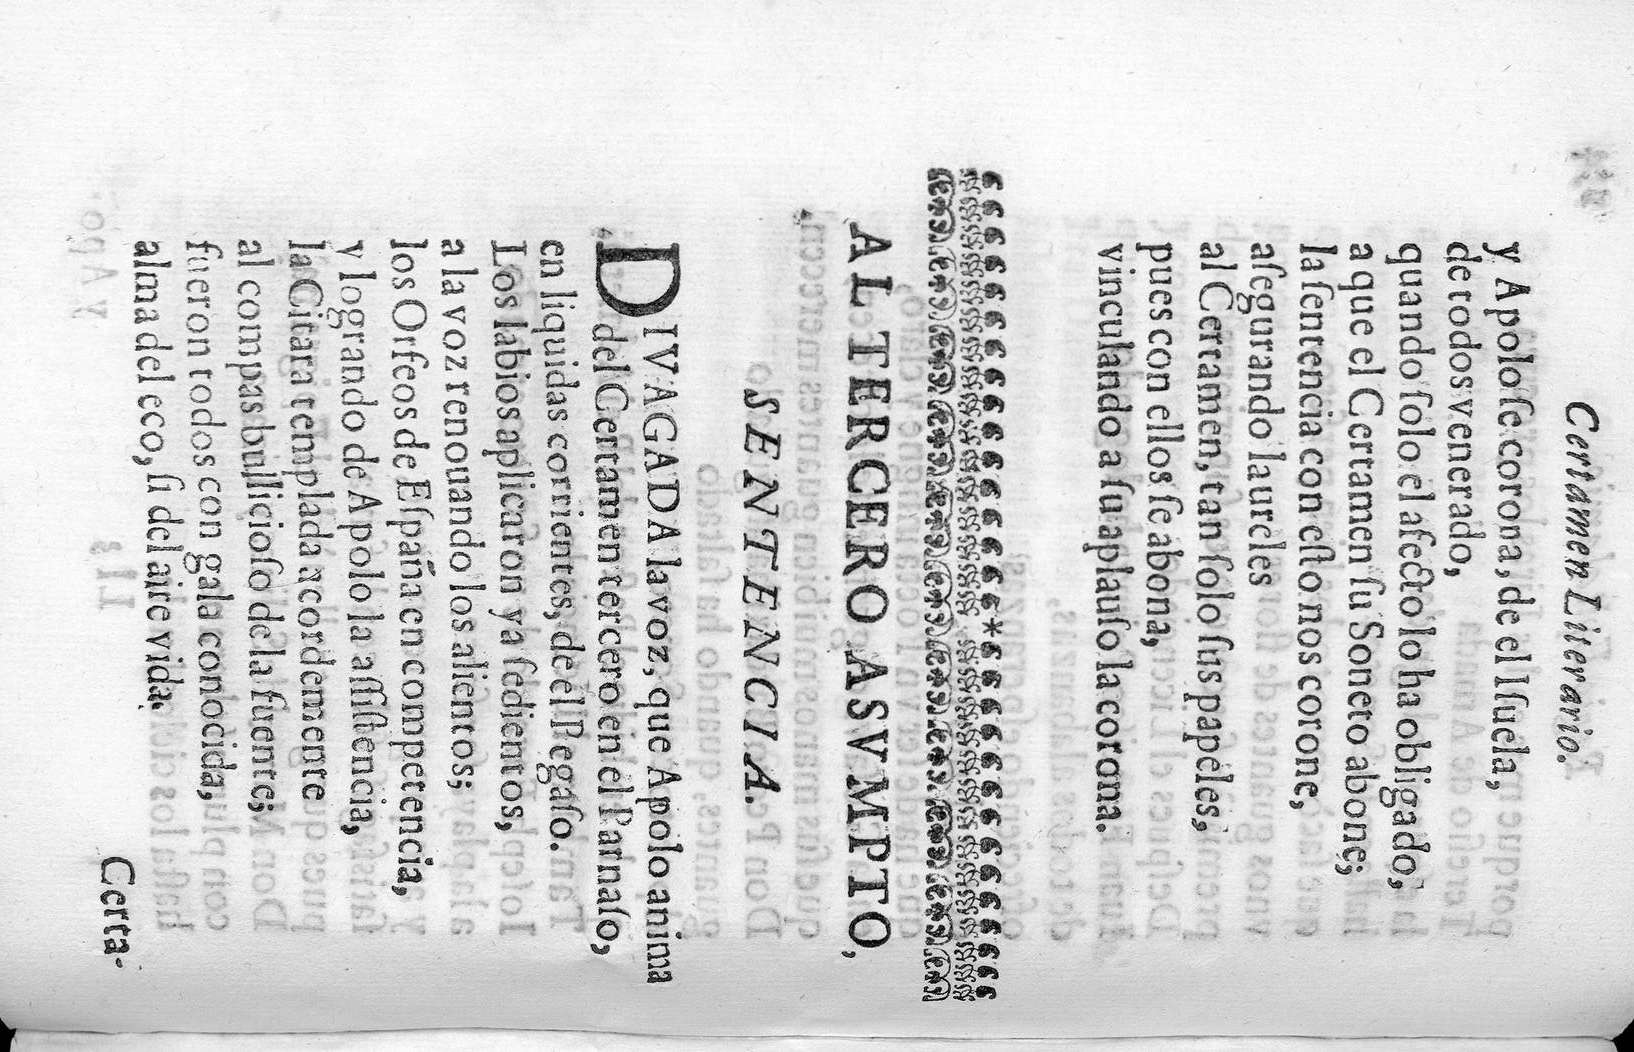 Certamen Literario.
y Apolo ſe corona, de el Iſuela,
de todos venerado,
quando ſolo el afecto lo ha obligado;
a que el Certamen ſu Soneto abone;
la ſentencia con eſto nos corone,
aſegurando laureles
al Certamen, tan ſolo ſus papeles,
pues con ellos ſe abona,
vinculando a ſu aplauſo la corona.
AL TERCERO ASVMPTO,
SENTENCIA.
DIVAGADA la voz, que Apolo anima
del Certamen tercero en el Parnaſo,
en liquidas corrientes, de el Pegaſo.
Los labios aplicaron ya ſedientos,
a la voz renouando los alientos;
los Orfeos de Eſpaña en competencia,
y logrando de Apolo la aſſiſtencia,
la Citara templada acordemente
al compas bullicioſo de la fuente;
fueron todos con gala conocida,
alma del eco, ſi del aire vida.
Certa-